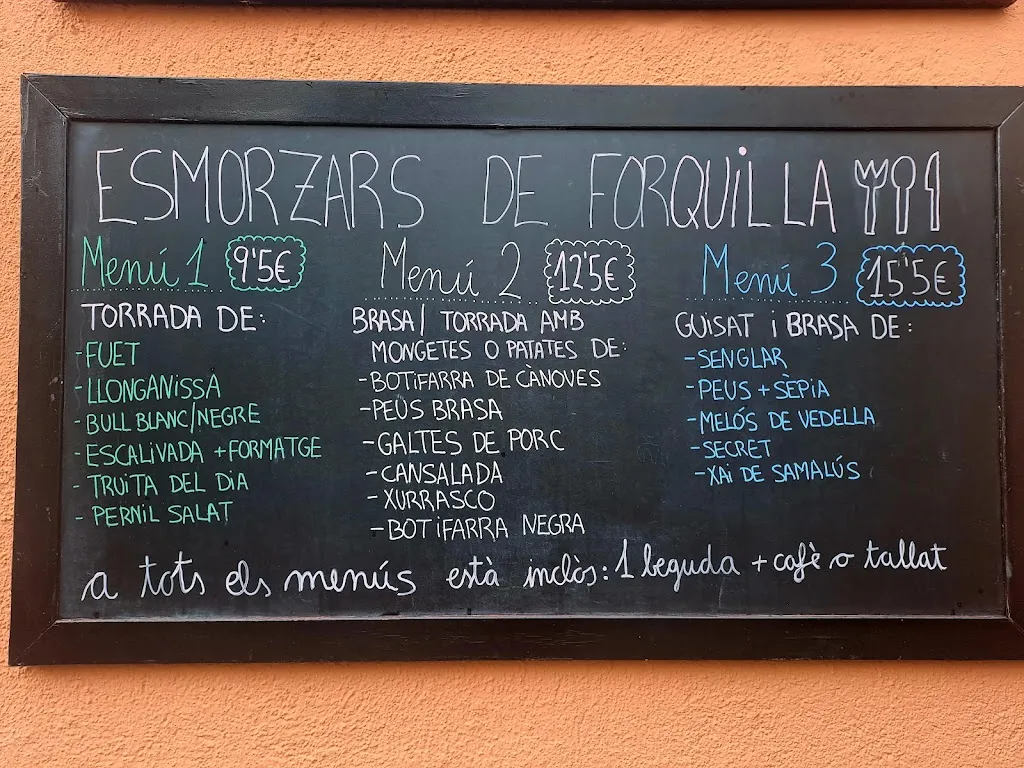 ESMORZARS DE FORQUILLA
Menú 1 9'5€
TORRADA DE:
-FUET
-LLONGANISSA
-BULL BLANC/NEGRE
-ESCALIVADA +FORMATGE
-TRUITA DEL DIA
-PERNIL SALAT
Menú 2 12'5€
BRASA/ TORRADA AMB
MONGETES O PATATES DE:
-BOTIFARRA DE CÀNOVES
-PEUS BRASA
-GALTES DE PORC
-CANSALADA
-XURRASCO
-BOTIFARRA NEGRA
Menú 3 15'5€
GUISAT i BRASA DE:
-SENGLAR
-PEUS + SÈPIA
-MELÓS DE VEDELLA
-SECRET
-XAI DE SAMALÚS
a tots els menús està inclòs: 1 beguda + cafè o tallat